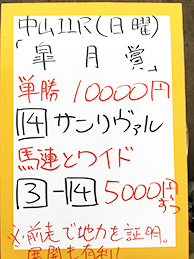 中山11R(日曜)
「皐月賞」
単勝 10000円
14 サンリヴァル
馬連とワイド
3-14 5000円ずつ
※前走で地力を証明。
展開も有利!